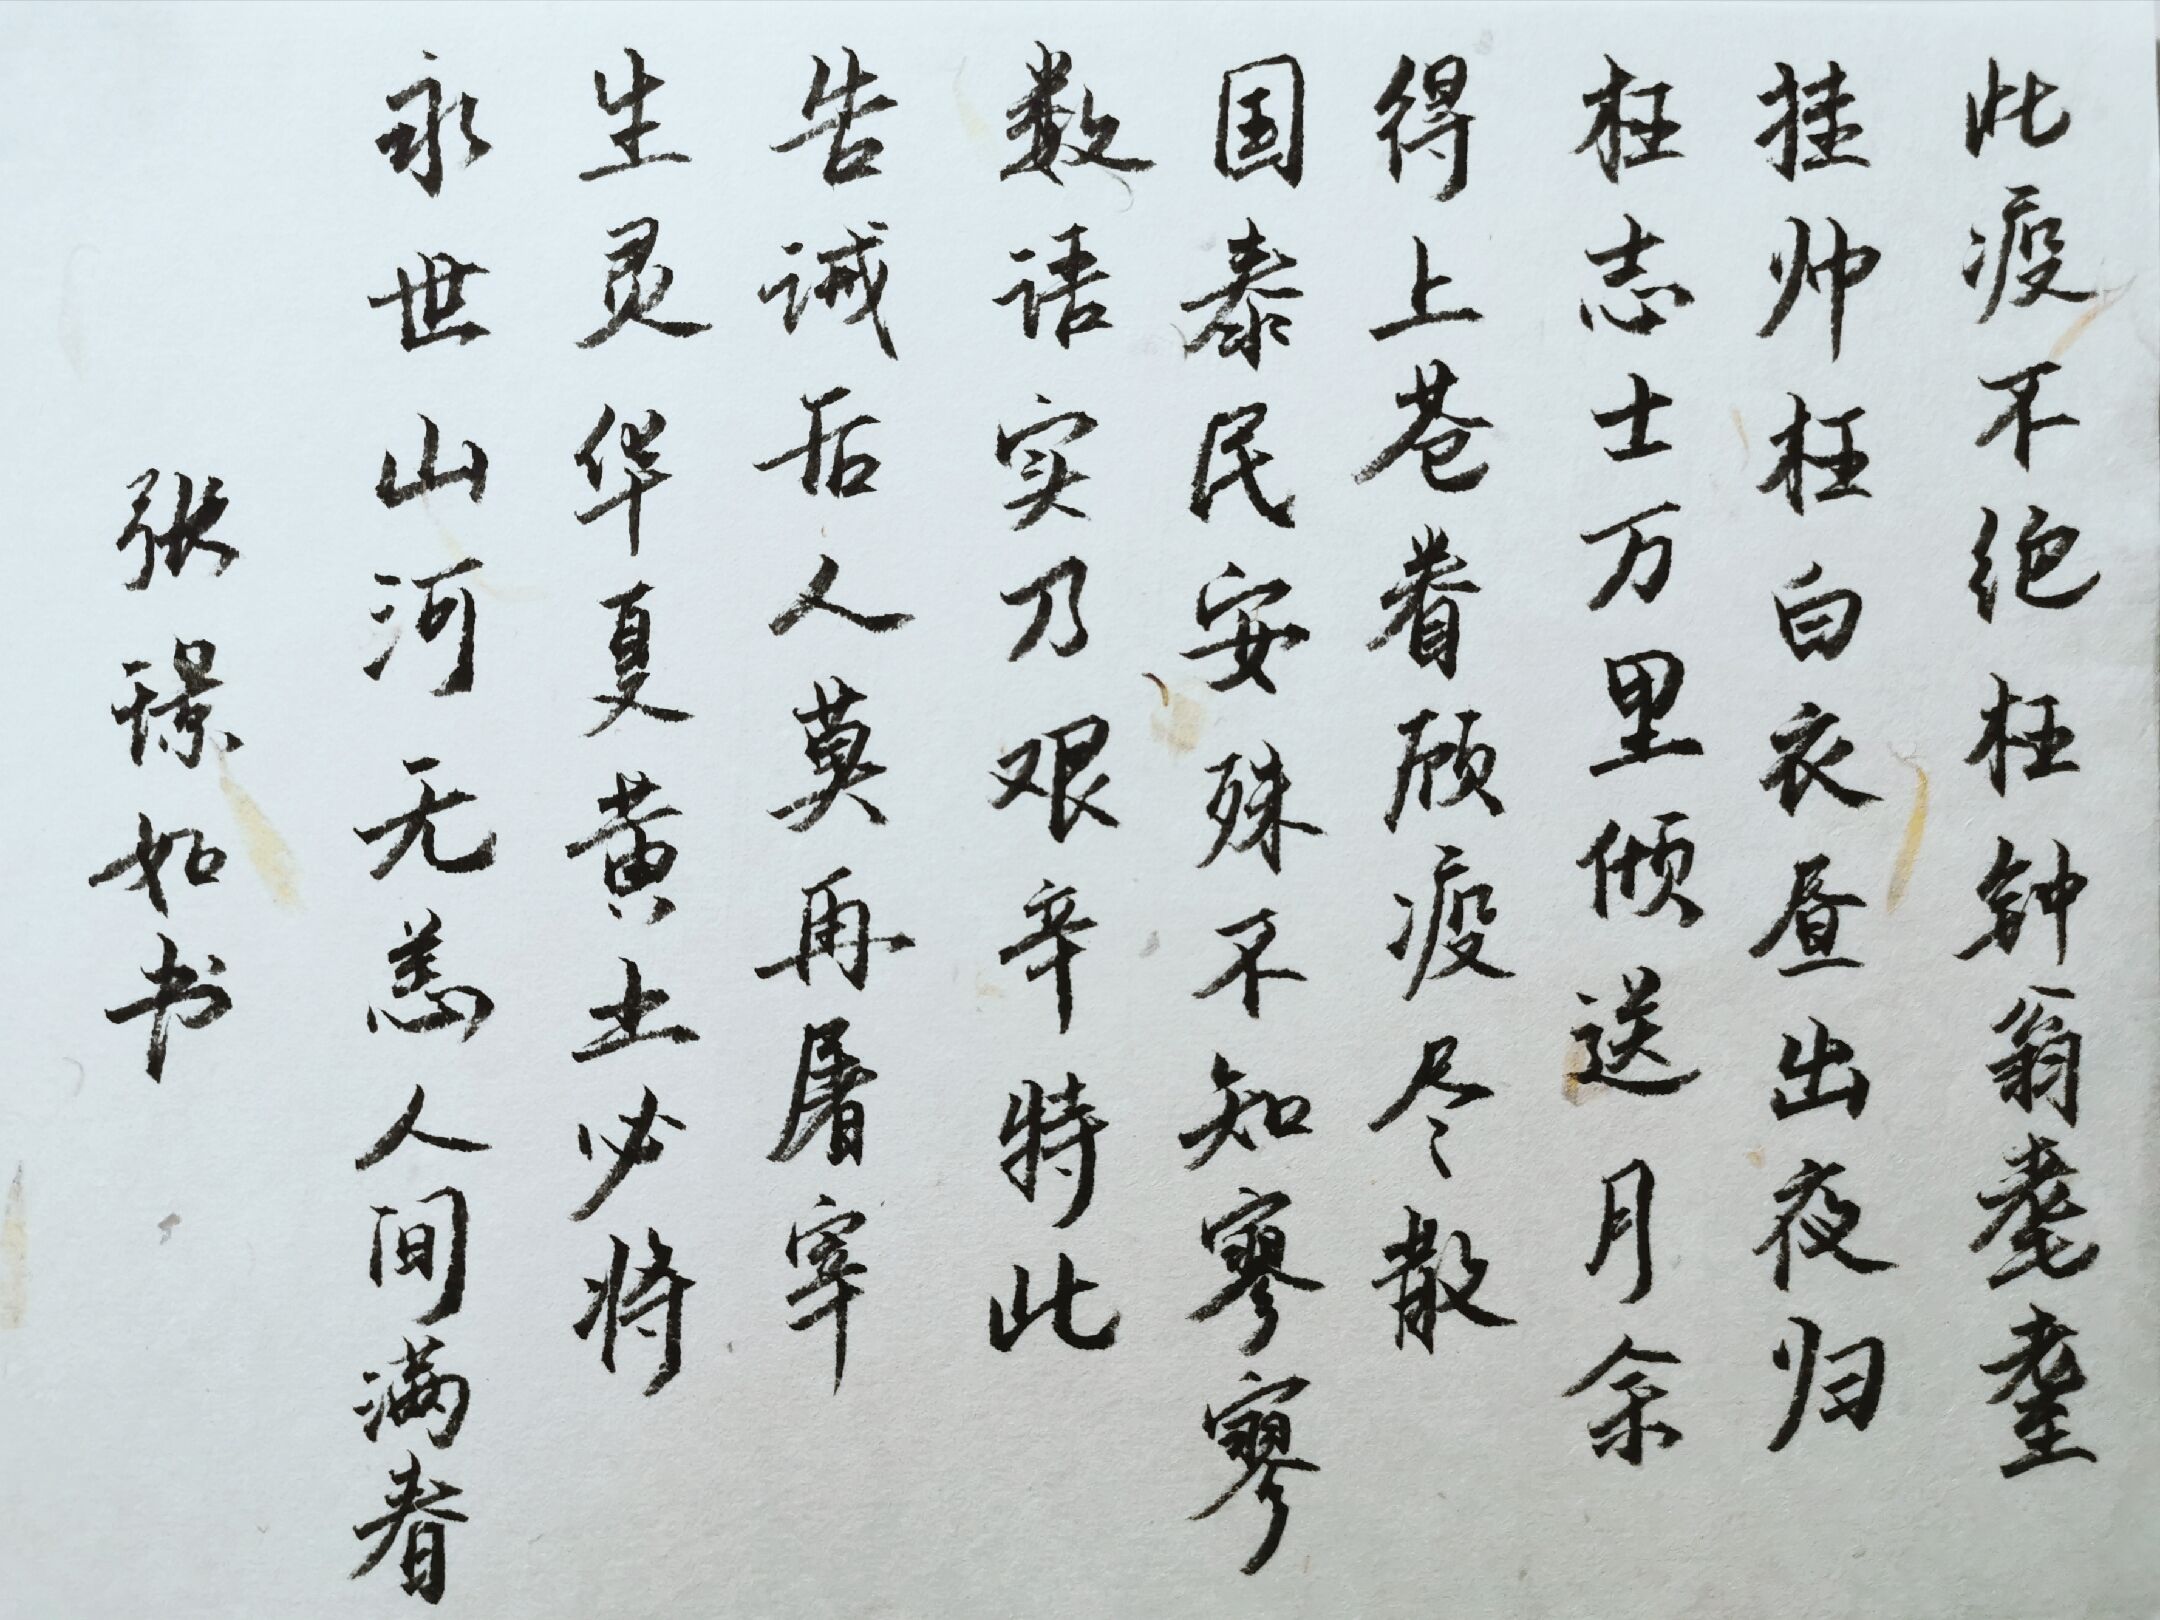 此疫不绝枉钟翁耄耋
挂帅枉白衣昼出夜归
枉志士万里倾送月余
得上苍眷顾疫尽散
国泰民安殊不知寥寥
数语实乃艰辛特此
告诫后人莫再屠宰
生灵华夏黄土必将
永世山河无恙人间满春
张璟如书